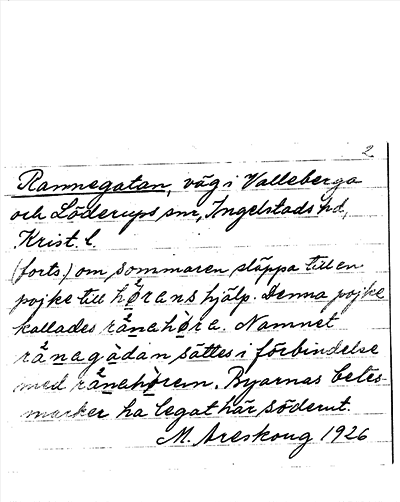 2
Rannegatan, väg i Valleberga
och Löderups snr, Ingelstads hd,
Krist. l.
(forts.) om sommaren släppa till en
pojke till hørans hjälp. Denna pojke
kallades rånahøra. Namnet
rånagådan sättes i förbindelse
med rånahørem. Byarnas betes-
marker ha legat här söderut.
M. Areskoug 1926